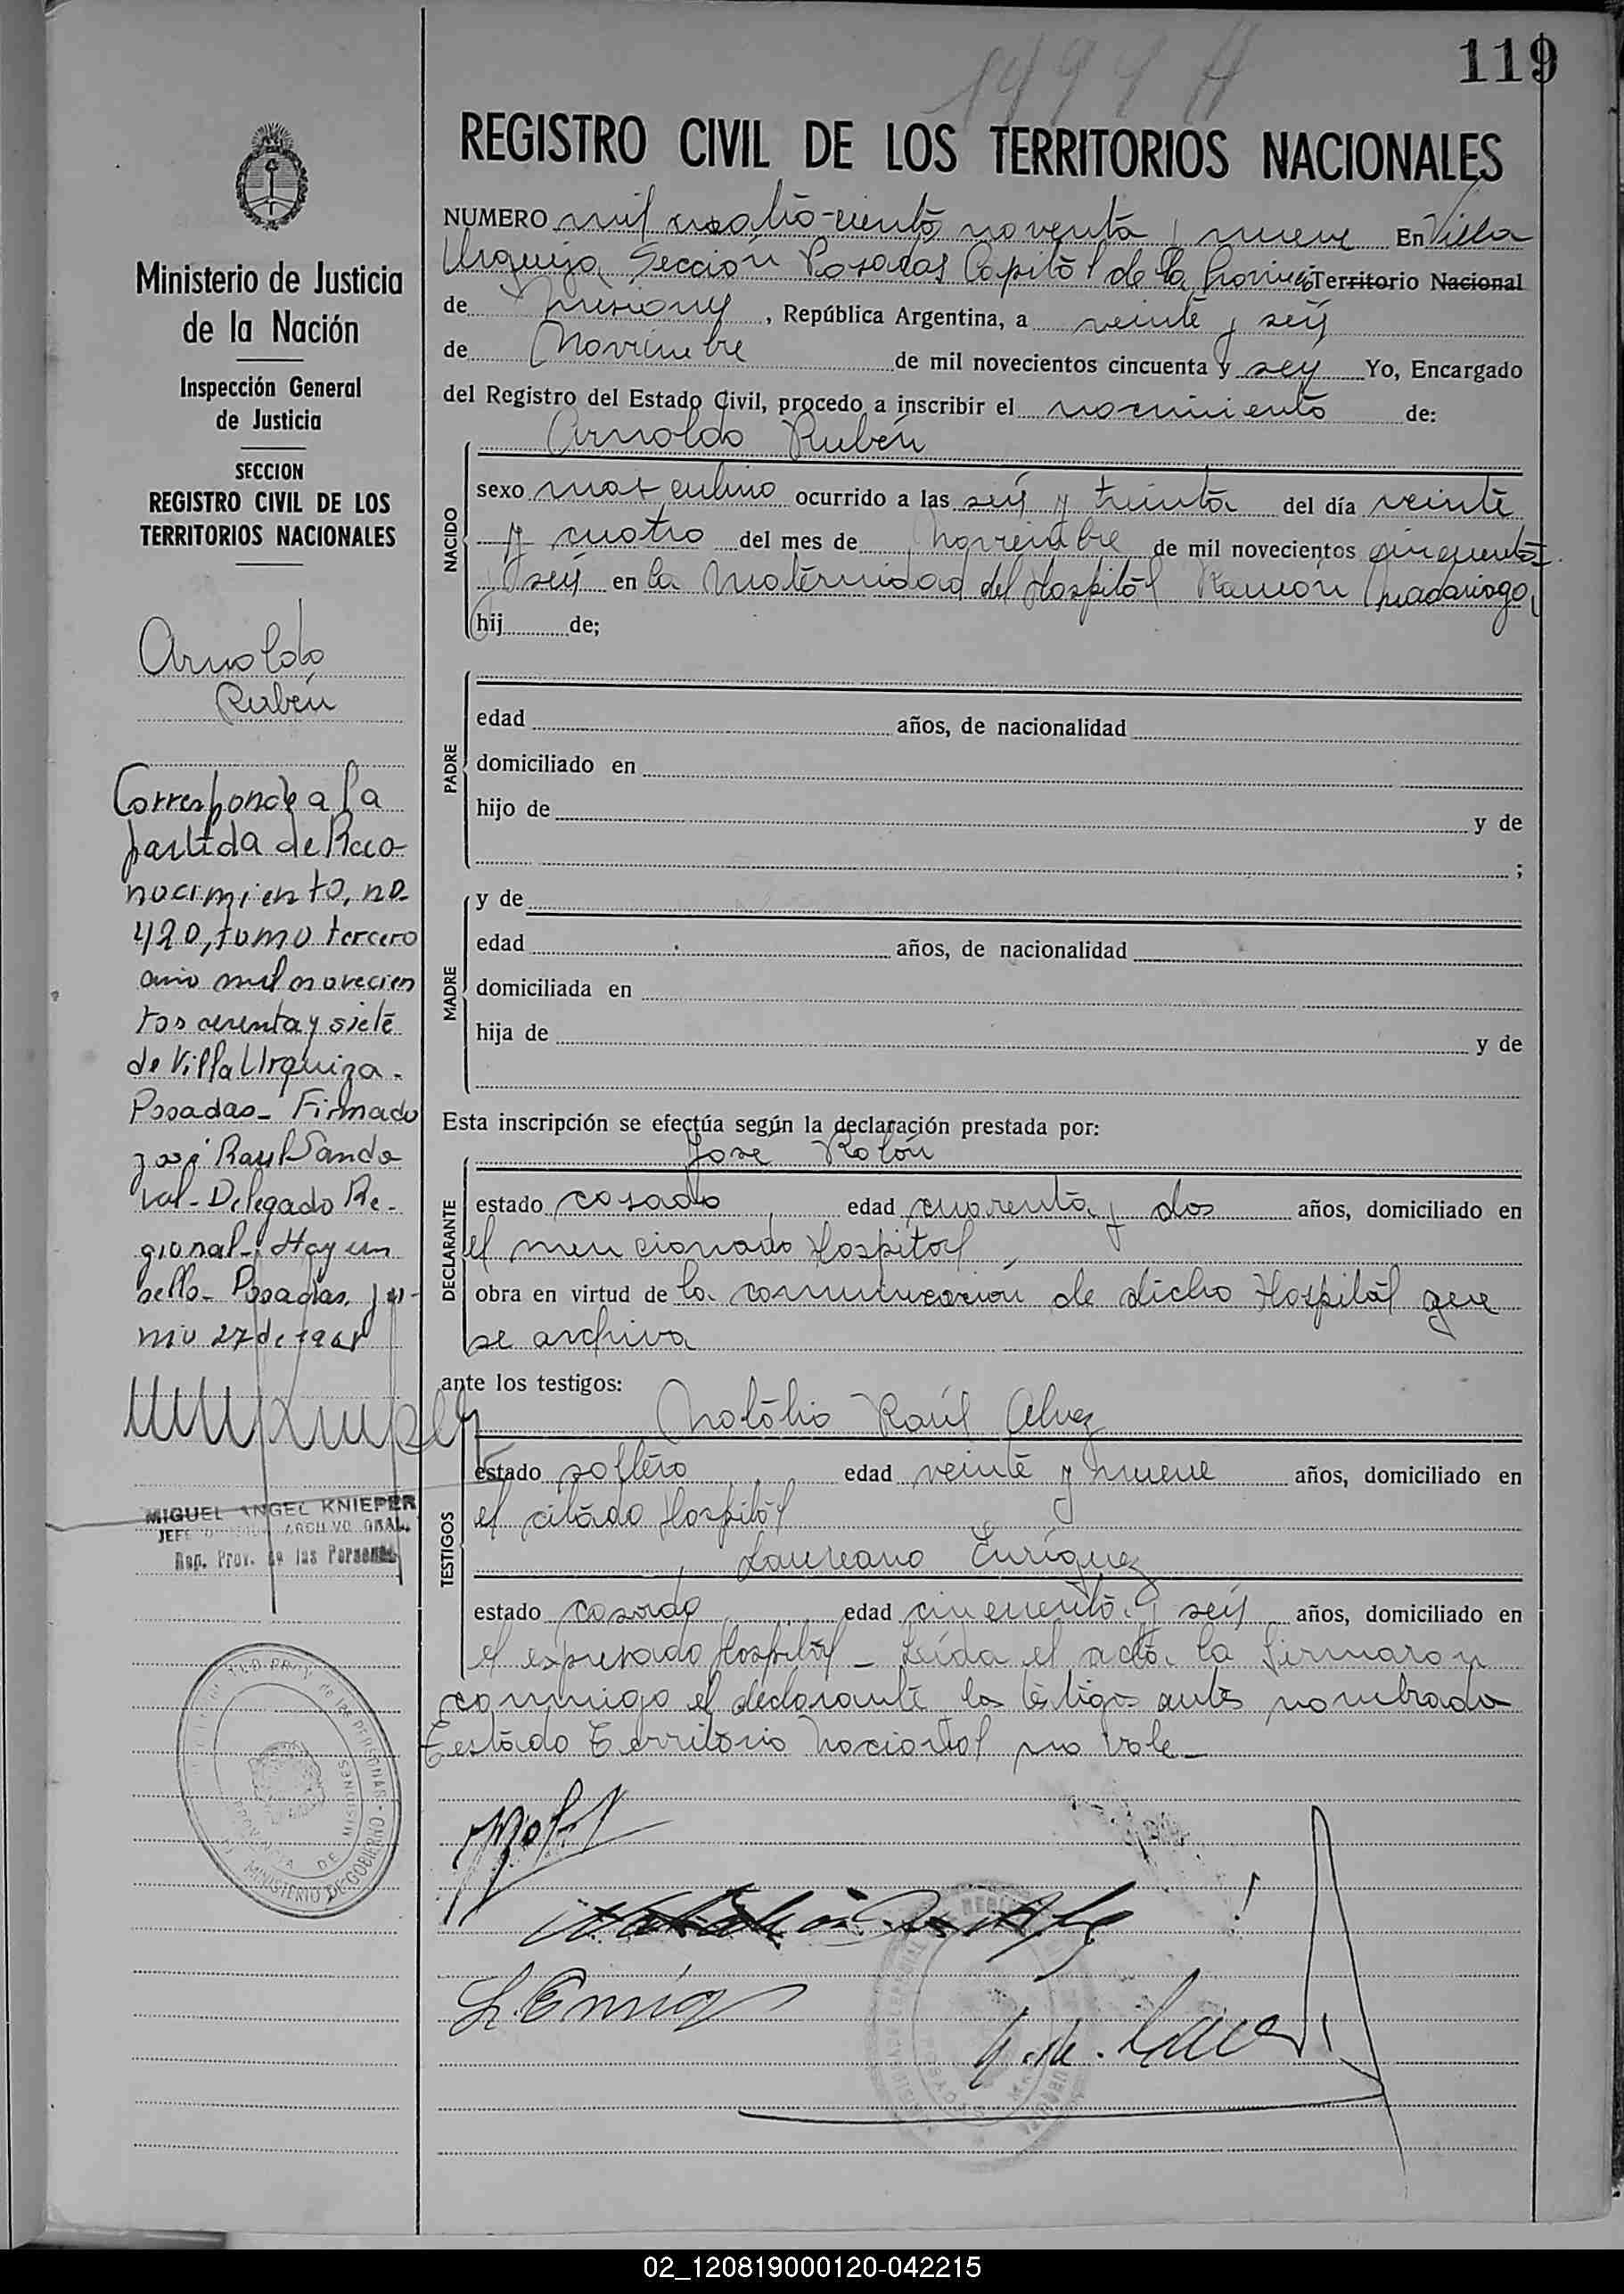 119
REGISTRO CIVIL DE LOS TERRITORIOS NACIONALES
NUMERO mil cuatro-cientos noventa y nueve En Villa
Urquiza, Sección Posadas Capital de la Provincia Territorio Nacional
de Misiones, República Argentina, a veinte y seis
de Noviembre de mil novecientos cincuenta y seis Yo, Encargado
del Registro del Estado Civil, procedo a inscribir el nacimiento de:
NACIDO
Arnoldo Rubén
sexo masculino ocurrido a las seis y treinta del día veinte
y cuatro del mes de Noviembre de mil novecientos cincuenta
y seis en la Maternidad del Hospital Ramón Madariaga,
hij de;
PADRE
edad años, de nacionalidad
domiciliado en
hijo de y de
;
MADRE
y de
edad años, de nacionalidad
domiciliada en
hija de y de
Esta inscripción se efectúa según la declaración prestada por:
DECLARANTE
José Rolón
estado casado edad cuarenta y dos años, domiciliado en
el mencionado Hospital
obra en virtud de la comunicación de dicho Hospital que
se archiva
ante los testigos:
TESTIGOS
Natalio Raúl Alvez
estado soltero edad veinte y nueve años, domiciliado en
el citado Hospital
Laureano Enríquez
estado casado edad cincuenta y seis años, domiciliado en
el expresado Hospital - Leída el acta la firmaron
conmigo el declarante los testigos antes nombrados
Testado Territorio Nacional no vale -
L. Enriq
Ministerio de Justicia
de la Nación
Inspección General
de Justicia
SECCION
REGISTRO CIVIL DE LOS
TERRITORIOS NACIONALES
Arnoldo
Rubén
Corresponde a la
partida de Reco-
nocimiento, no
420, tomo tercero
año mil novecien
tos sesenta y siete
de Villa Urquiza.
Posadas - Firmado
José Raul Sando
val - Delegado Re-
gional - Hay un
sello - Posadas, ju-
nio 27 de 1968
MIGUEL ANGEL KNIEPER
JEFE ARCHIVO GRAL.
Reg. Prov. de las Personas
REG. PROV. de las PERSONAS - MINISTERIO DE GOBIERNO
PROVINCIA DE MISIONES
02_120819000120-042215